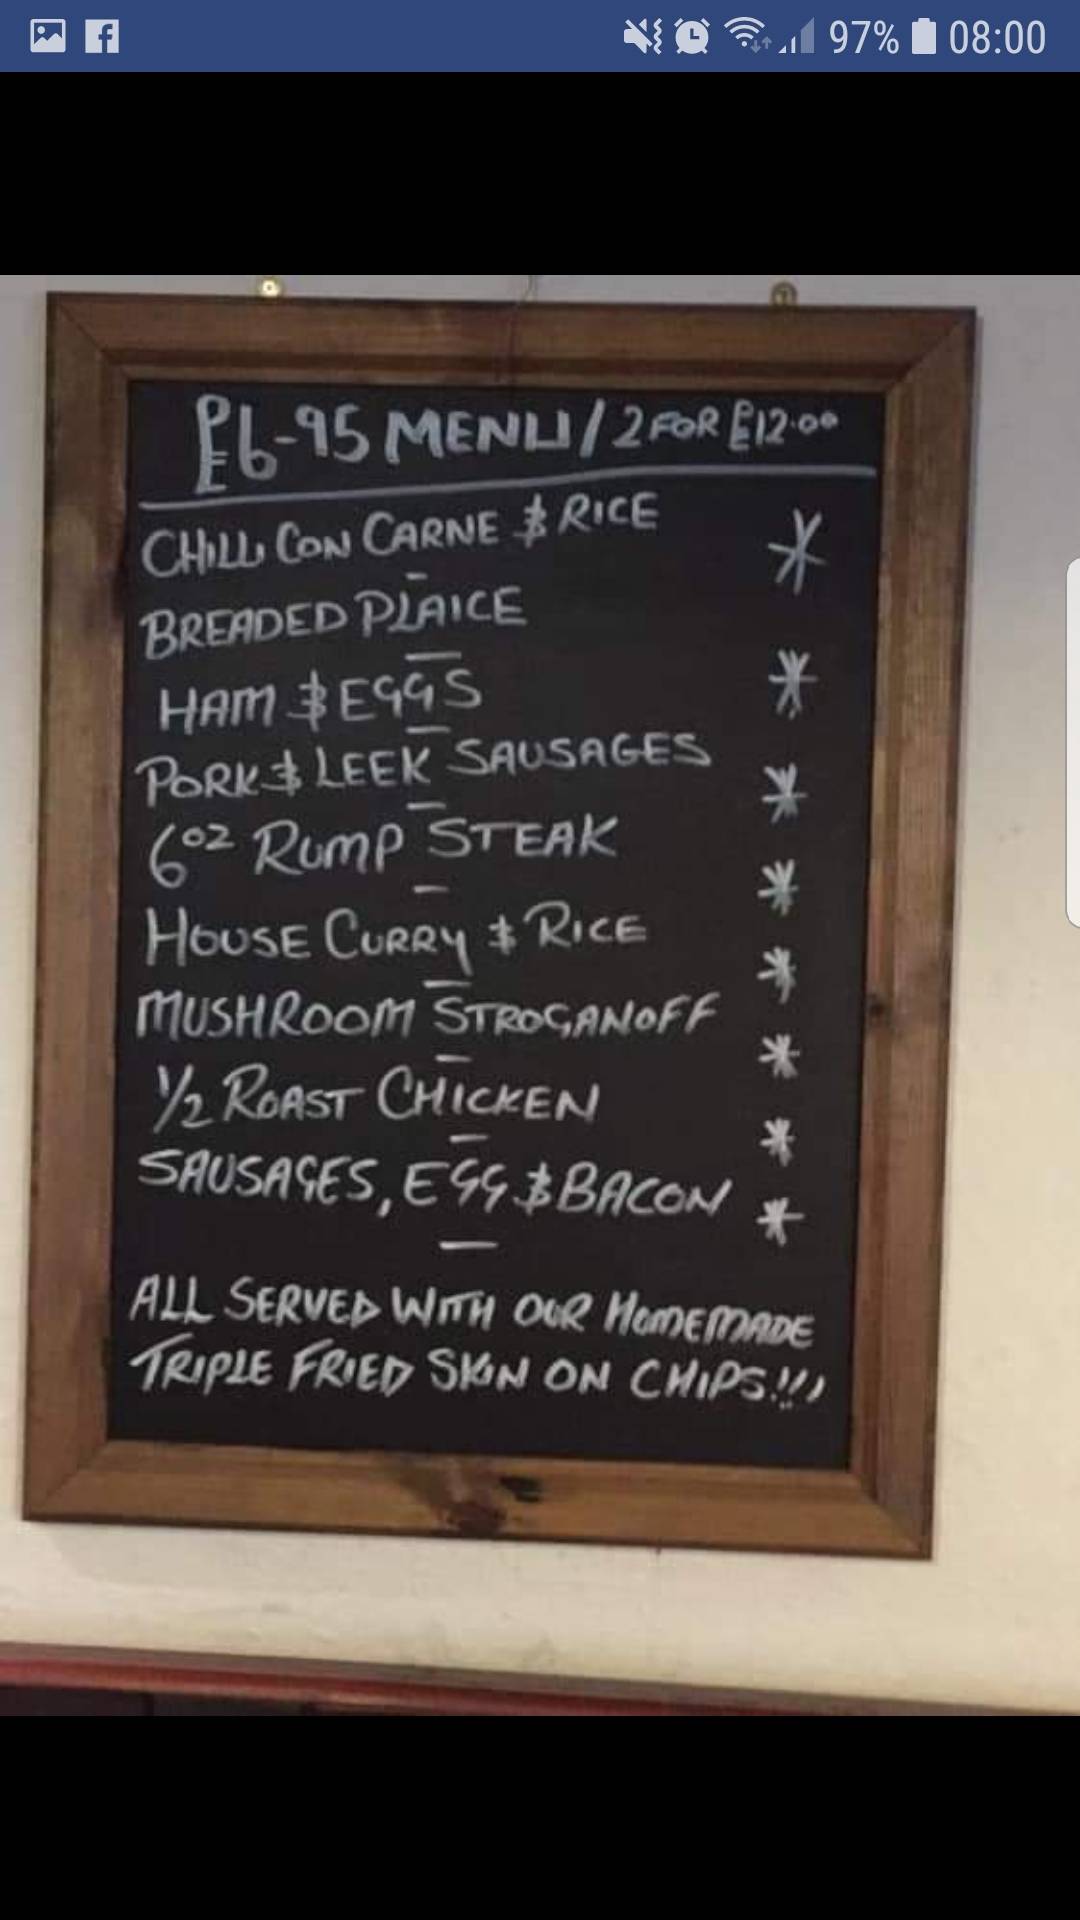 97% 08:00
£6-95 MENU / 2 FOR £12.00
CHILLI CON CARNE & RICE
BREADED PLAICE
HAM & EGGS
PORK & LEEK SAUSAGES
6oz RUMP STEAK
HOUSE CURRY & RICE
MUSHROOM STROGANOFF
1/2 ROAST CHICKEN
SAUSAGES, EGG & BACON
ALL SERVED WITH OUR HOMEMADE
TRIPLE FRIED SKIN ON CHIPS!!!